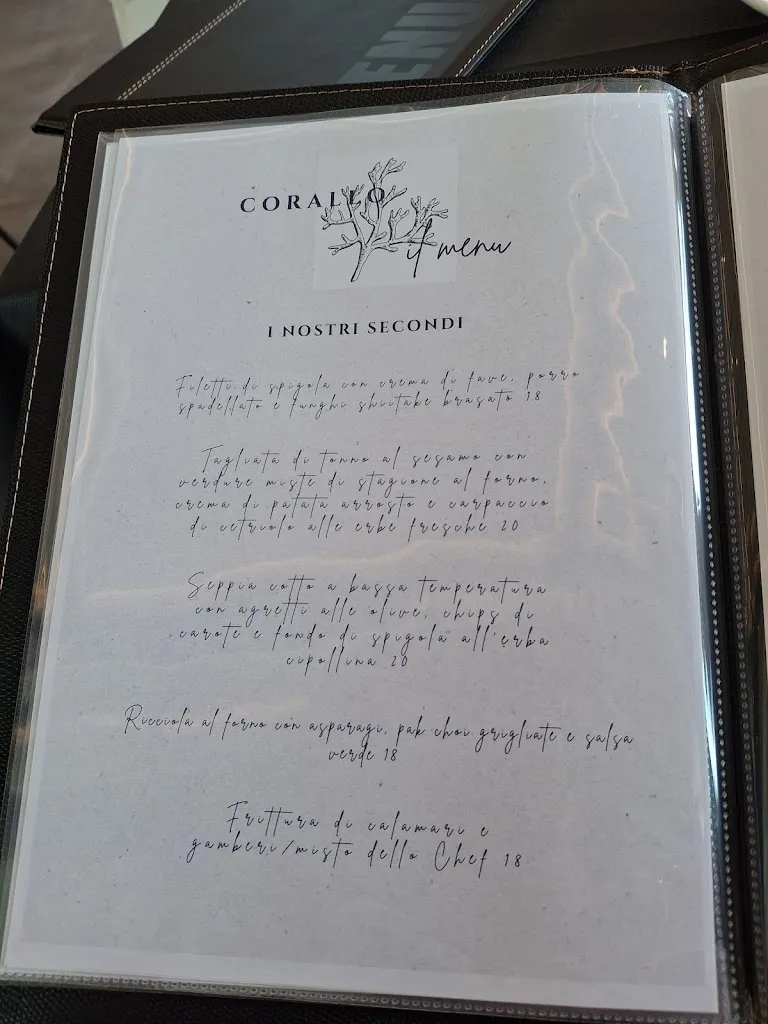 MENU
CORALLO
il menu
I NOSTRI SECONDI
Filetti di spigola con crema di fave, porro
spadellato e funghi shiitake brasato 18
Tagliata di tonno al sesamo con
verdure miste di stagione al forno,
crema di patata arrosto e carpaccio
di cetriolo alle erbe fresche 20
Seppia cotto a bassa temperatura
con agretti alle olive, chips di
carote e fondo di spigola all'erba
cipollina 20
Ricciola al forno con asparagi, pak choi grigliate e salsa
verde 18
Frittura di calamari e
gamberi/misto dello Chef 18